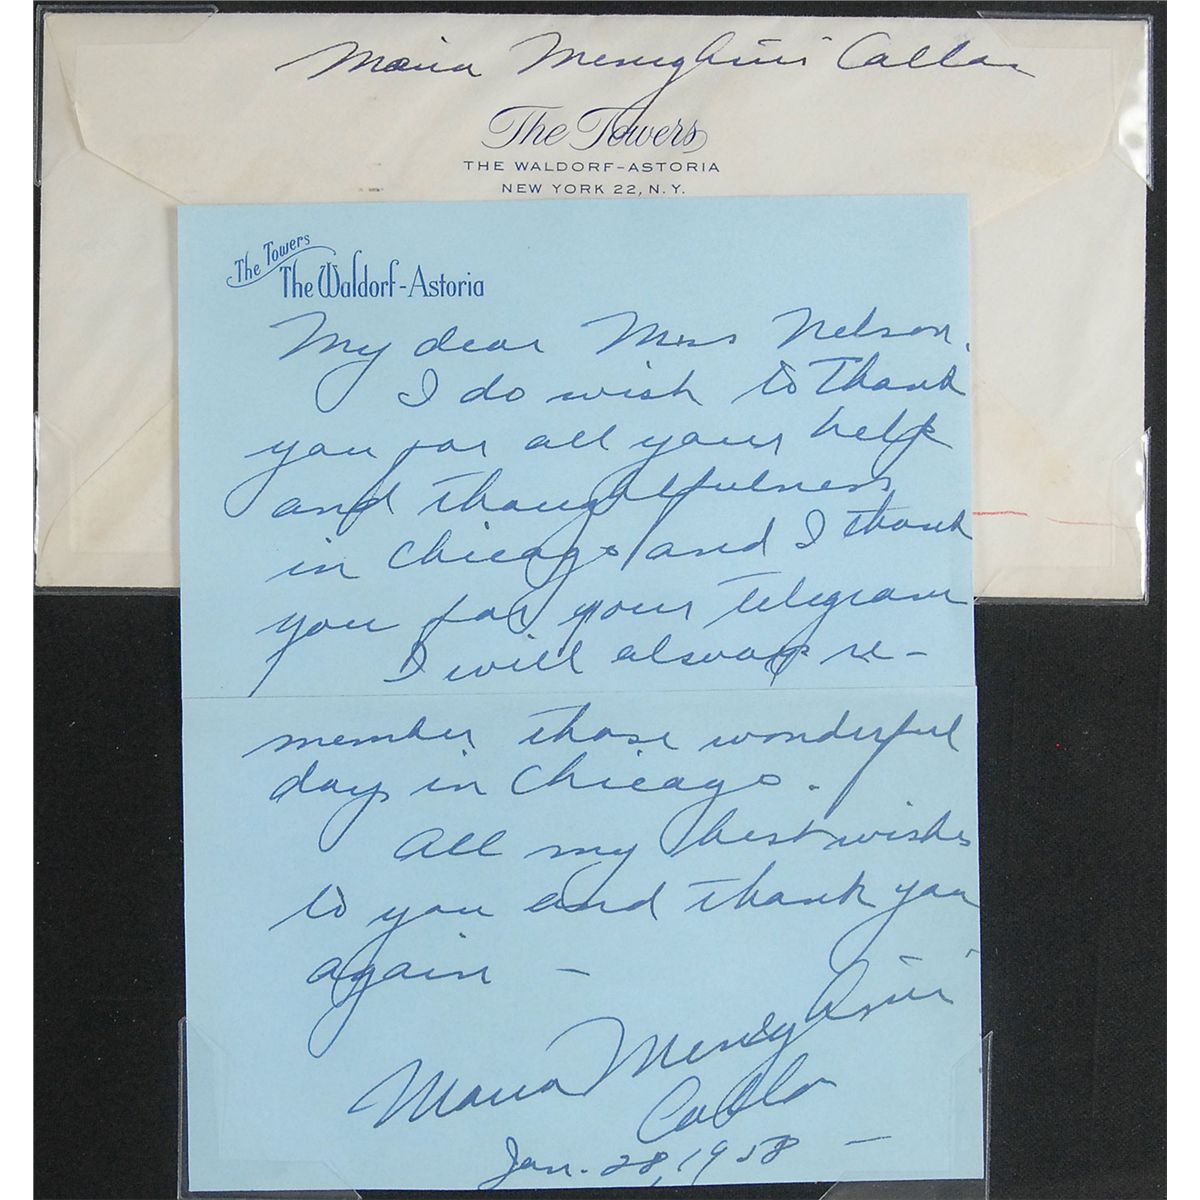 Maria Meneghini Callas
The Towers
THE WALDORF-ASTORIA
NEW YORK 22, N.Y.
The Towers
The Waldorf-Astoria
My dear Miss Nelson,
I do wish to thank
you for all your help
and thoughtfulness
in Chicago and I thank
you for your telegram
I will always re-
member those wonderful
days in Chicago.
All my best wishes
to you and thank you
again –
Maria Meneghini
Callas
Jan. 28, 1958 –